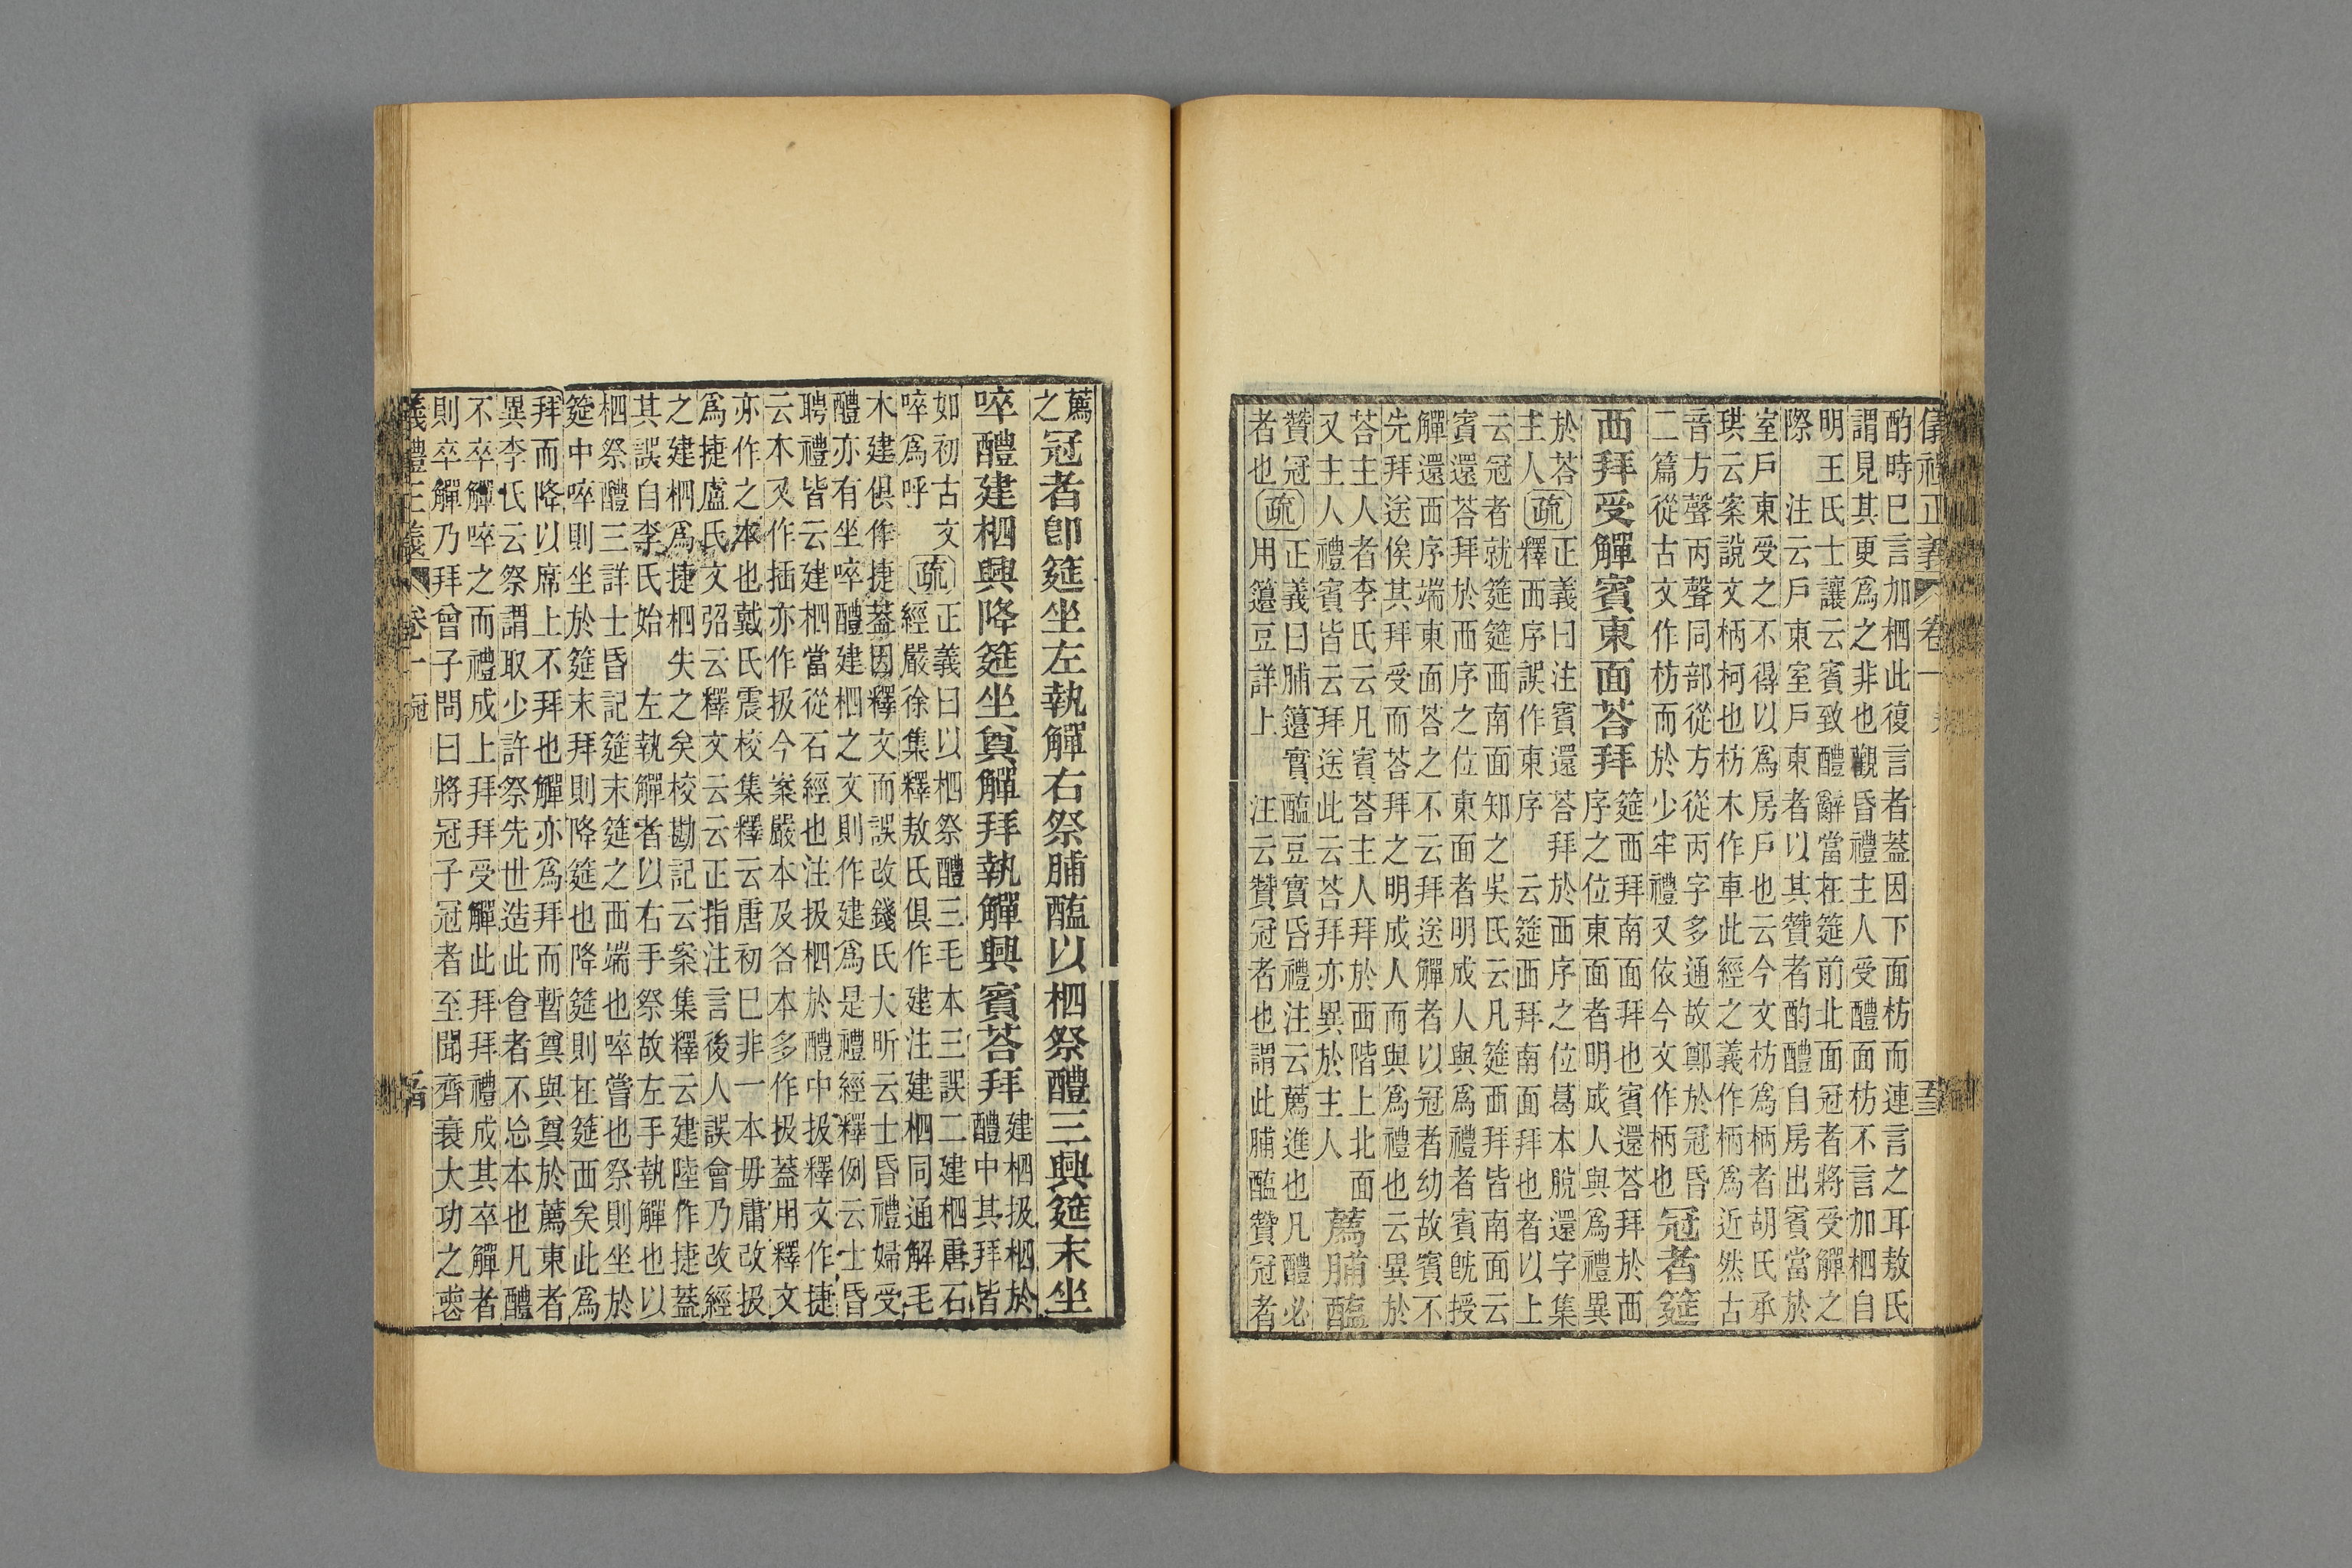 儀禮正義 卷一
酌時巳言加柶此復言者蓋因下面枋而連言之耳敖氏
謂見其更爲之非也觀昏禮主人受醴面枋不言加柶自
明王氏士讓云賓致醴辭當在筵前北面冠者將受觶之
際 注云戶東室戶東者以其贊者酌醴自房出賓當於
室戶東受之不得以爲房戶也云今文枋爲柄者胡氏承
珙云案說文柄柯也枋木作車此經之義作柄爲近然古
音方聲丙聲同部從方從丙字多通故鄭於冠昏
二篇從古文作枋而於少牢禮又依今文作柄也
冠者筵
西拜受觶賓東面荅拜
筵西拜南面拜也賓還荅拜於西
序之位東面者明成人與爲禮異
於荅
主人
疏
正義曰注賓還荅拜於西序之位葛本脫還字集
釋西序誤作東序 云筵西拜南面拜也者以上
云冠者就筵筵西南面知之吳氏云凡筵西拜皆南面云
賓還荅拜於西序之位東面者明成人與爲禮者賓旣授
觶還西序端東面荅之不云拜送觶者以冠者幼故賓不
先拜送俟其拜受而荅拜之明成人而與爲禮也云異於
荅主人者李氏云凡賓荅主人拜於西階上北面
又主人禮賓皆云拜送此云荅拜亦異於主人
薦脯醢
贊冠
者也
疏
正義曰脯籩實醢豆實昏禮注云薦進也凡醴必
用籩豆詳上 注云贊冠者也謂此脯醢贊冠者
薦
之
冠者卽筵坐左執觶右祭脯醢以柶祭醴三興筵末坐
啐醴建柶興降筵坐奠觶拜執觶興賓荅拜
建柶扱柶於
醴中其拜皆
如初古文
啐爲呼
疏
正義曰以柶祭醴三毛本三誤二建柶唐石
經嚴徐集釋敖氏俱作建注建柶同通解毛
木建俱作捷蓋因釋文而誤改錢氏大昕云士昏禮婦受
醴亦有坐啐醴建柶之文則作建爲是禮經釋例云士昏
聘禮皆云建柶當從石經也注扱柶於醴中扱釋文作捷
云木又作插亦作扱今案嚴本及各本多作扱蓋用釋文
亦作之本也戴氏震校集釋云唐初巳非一本毋庸改扱
爲捷盧氏文弨云釋文云云正指注言後人誤會乃改經
之建柶爲捷柶失之矣校勘記云案集釋云建陸作捷蓋
其誤自李氏始 左執觶者以右手祭故左手執觶也以
柶祭醴三詳士昏記筵末筵之西端也啐嘗也祭則坐於
筵中啐則坐於筵末拜則降筵也降筵則在筵西矣此爲
拜而降以席上不拜也觶亦爲拜而暫奠與奠於薦東者
異李氏云祭謂取少許祭先世造此食者不忘本也凡醴
不卒觶啐之而禮成上拜拜受觶此拜拜禮成其卒觶者
則卒觶乃拜曾子問曰將冠子冠者至聞齊衰大功之喪
義禮正義 卷一 冠